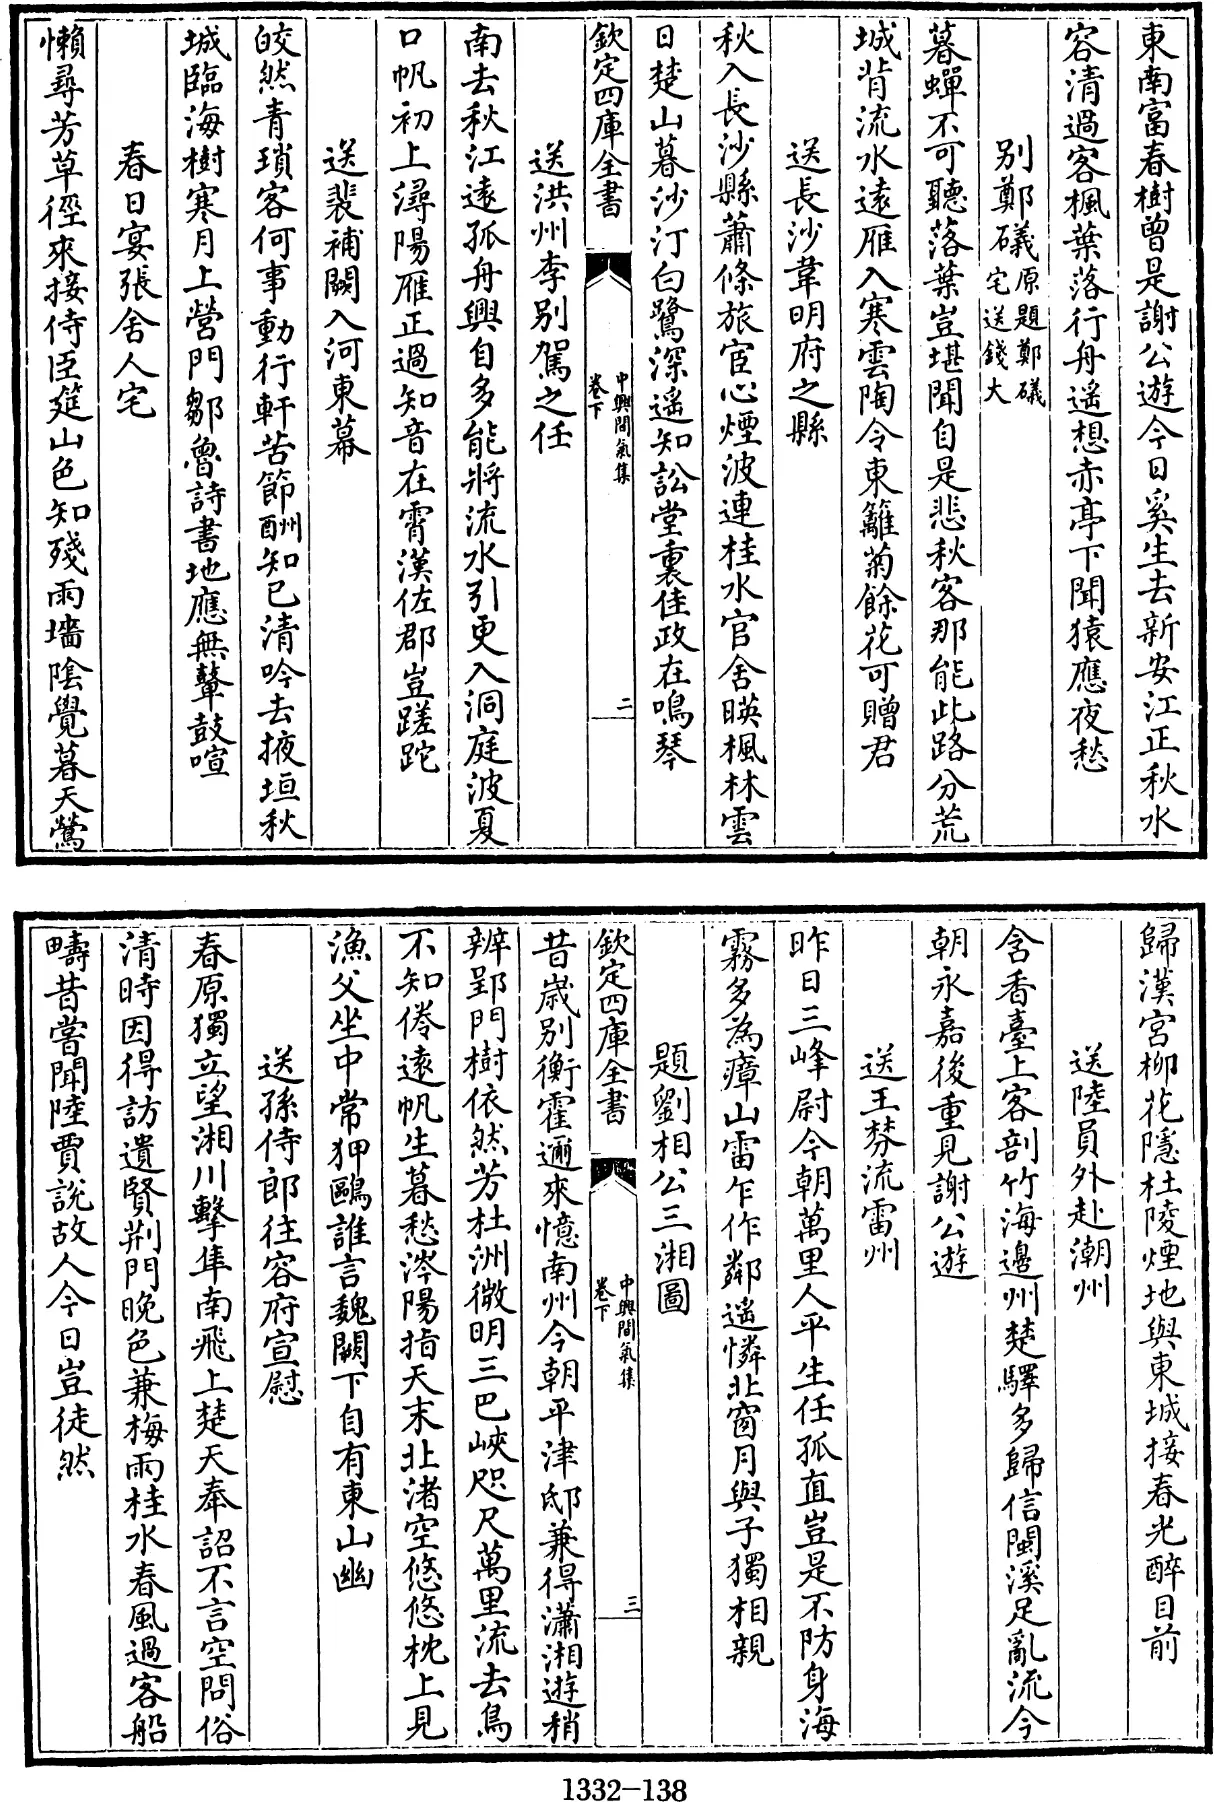 東南富春樹曾是謝公遊今日奚生去新安江正秋水
容清過客楓葉落行舟遥想赤亭下聞猿應夜愁
别鄭礒原題鄭礒宅送錢大
暮蟬不可聽落葉豈堪聞自是悲秋客那能此路分荒
城背流水遠雁入寒雲陶令東籬菊餘花可贈君
送長沙韋明府之縣
秋入長沙縣蕭條旅宦心煙波連桂水官舍暎楓林雲
日楚山暮沙汀白鷺深遥知訟堂裏佳政在鳴琴
欽定四庫全書
中興間氣集
卷下
二
送洪州李别駕之任
南去秋江遠孤舟興自多能將流水引更入洞庭波夏
口帆初上潯陽雁正過知音在霄漢佐郡豈蹉跎
送裴補闕入河東幕
皎然青瑣客何事動行軒苦節酬知已清吟去掖垣秋
城臨海樹寒月上營門鄒魯詩書地應無鼙鼓喧
春日宴張舍人宅
懶尋芳草徑來接侍臣筵山色知殘雨墻陰覺暮天鶯
歸漢宮柳花隱杜陵煙地與東城接春光醉目前
送陸員外赴潮州
含香臺上客剖竹海邊州楚驛多歸信閩溪足亂流今
朝永嘉後重見謝公遊
送王棼流雷州
昨日三峰尉今朝萬里人平生任孤直豈是不防身海
霧多為瘴山雷乍作鄰遥憐北窗月與子獨相親
題劉相公三湘圖
欽定四庫全書
中興間氣集
卷下
三
昔歲别衡霍邇來憶南州今朝平津邸兼得瀟湘遊稍
辨郢門樹依然芳杜洲微明三巴峽咫尺萬里流去鳥
不知倦遠帆生暮愁涔陽指天末北渚空悠悠枕上見
漁父坐中常狎鷗誰言魏闕下自有東山幽
送孫侍郎往容府宣慰
春原獨立望湘川擊隼南飛上楚天奉詔不言空問俗
清時因得訪遺賢荆門晚色兼梅雨桂水春風過客船
疇昔嘗聞陸賈說故人今日豈徒然
1332-138